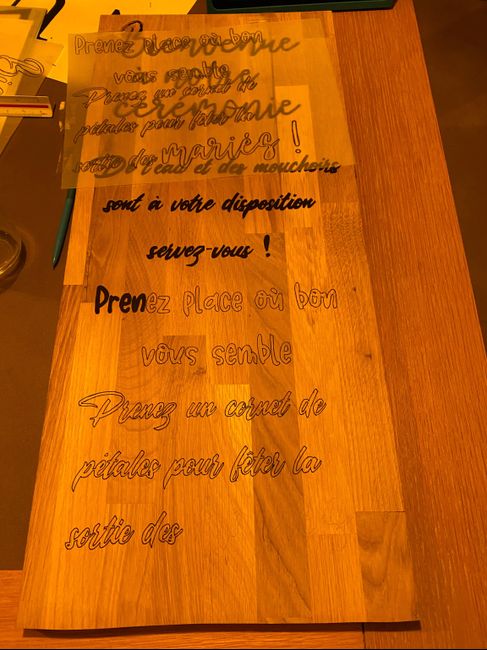 Prenez place où bon
Bienvenue
vous semble
notre
Prenez un cornet de
cérémonie
pétales pour fêter la
sortie des mariés !
De l'eau et des mouchoirs
sont à votre disposition
servez-vous !
Prenez place où bon
vous semble
Prenez un cornet de
pétales pour fêter la
sortie des